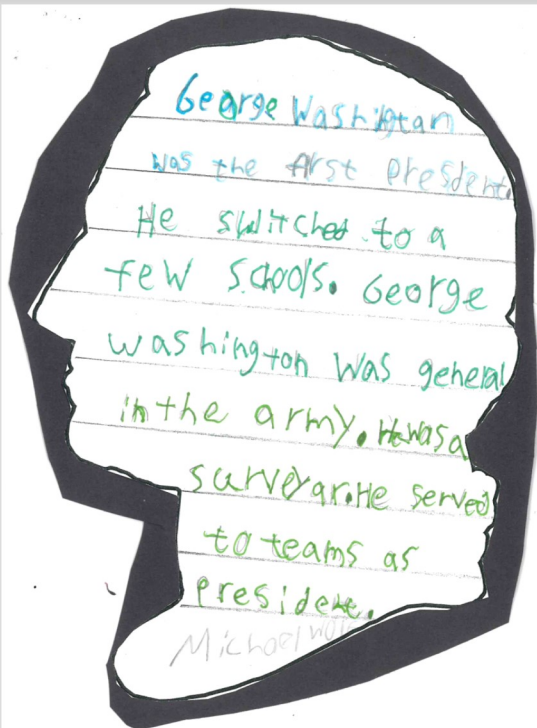 George Washington
was the first President
He switched to a
few Scools. George
washington was general
in the army. He was a
surveyar. He served
to teams as
Presidene.
Michael